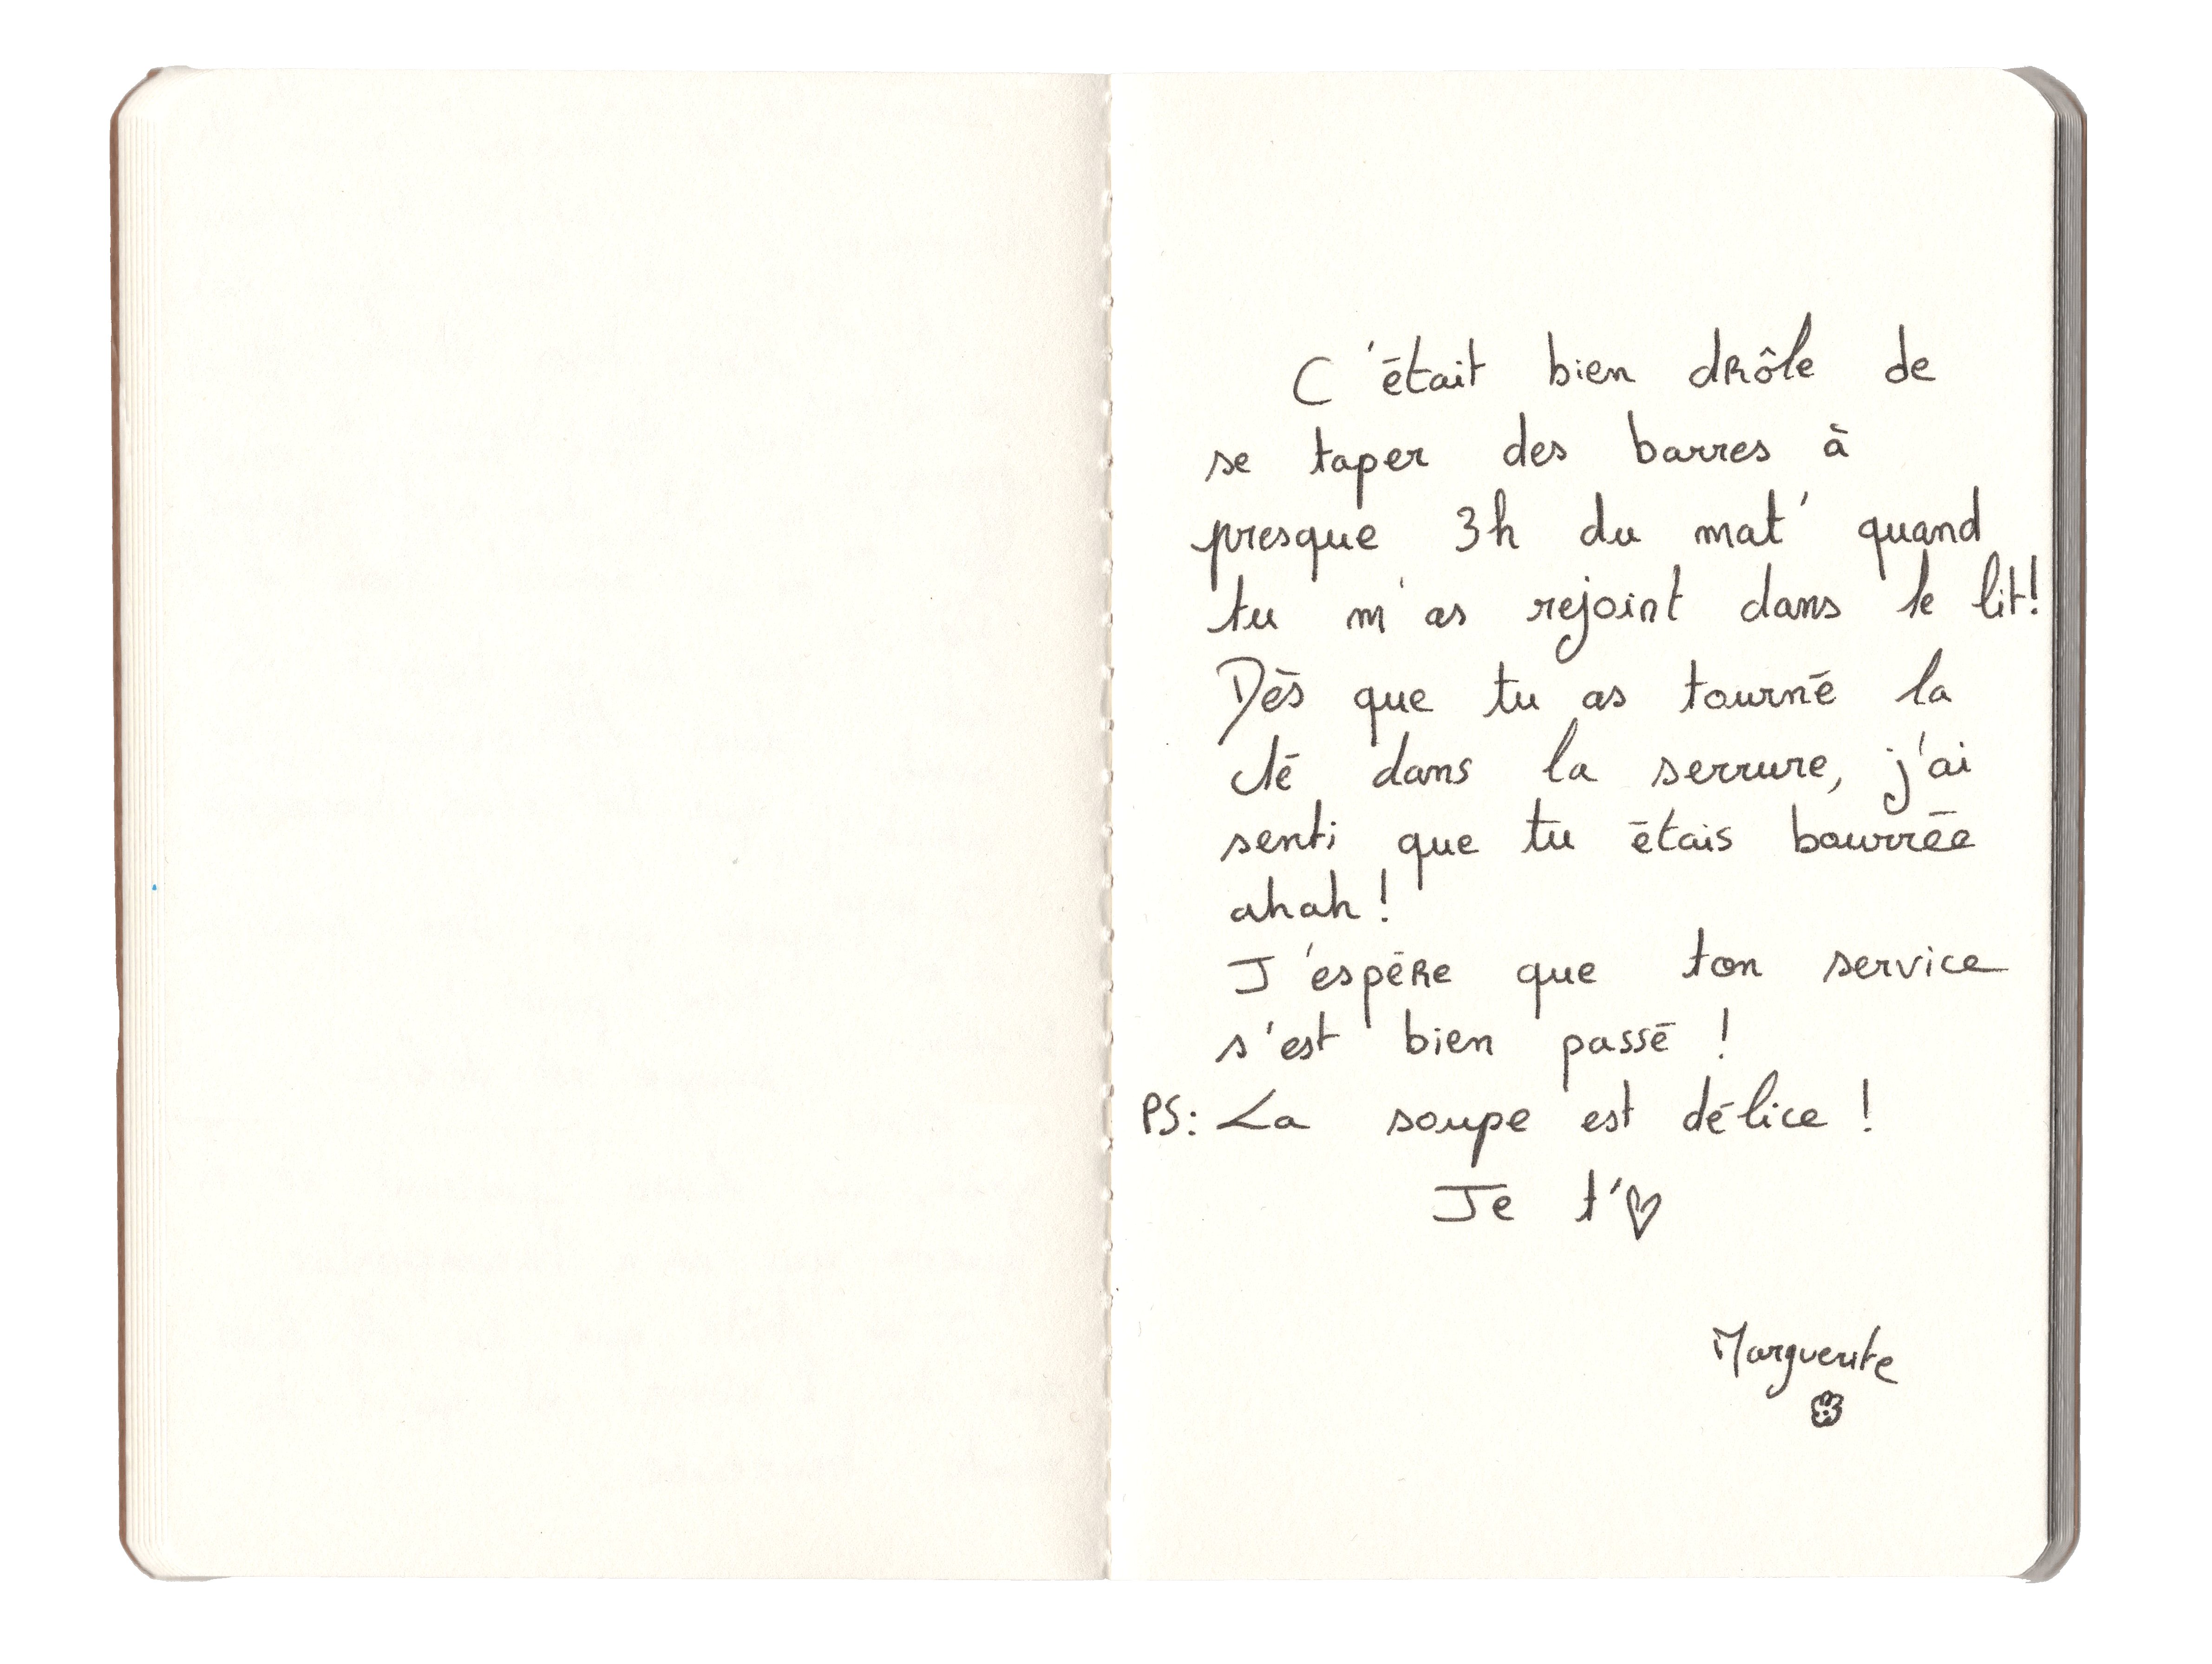 C'était bien drôle de
se taper des barres à
presque 3h du mat' quand
tu m'as rejoint dans le lit!
Dès que tu as tourné la
clé dans la serrure, j'ai
senti que tu étais bourrée
ahah !
J'espère que ton service
s'est bien passé !
PS: La soupe est délice !
Je t'♡
Marguerite